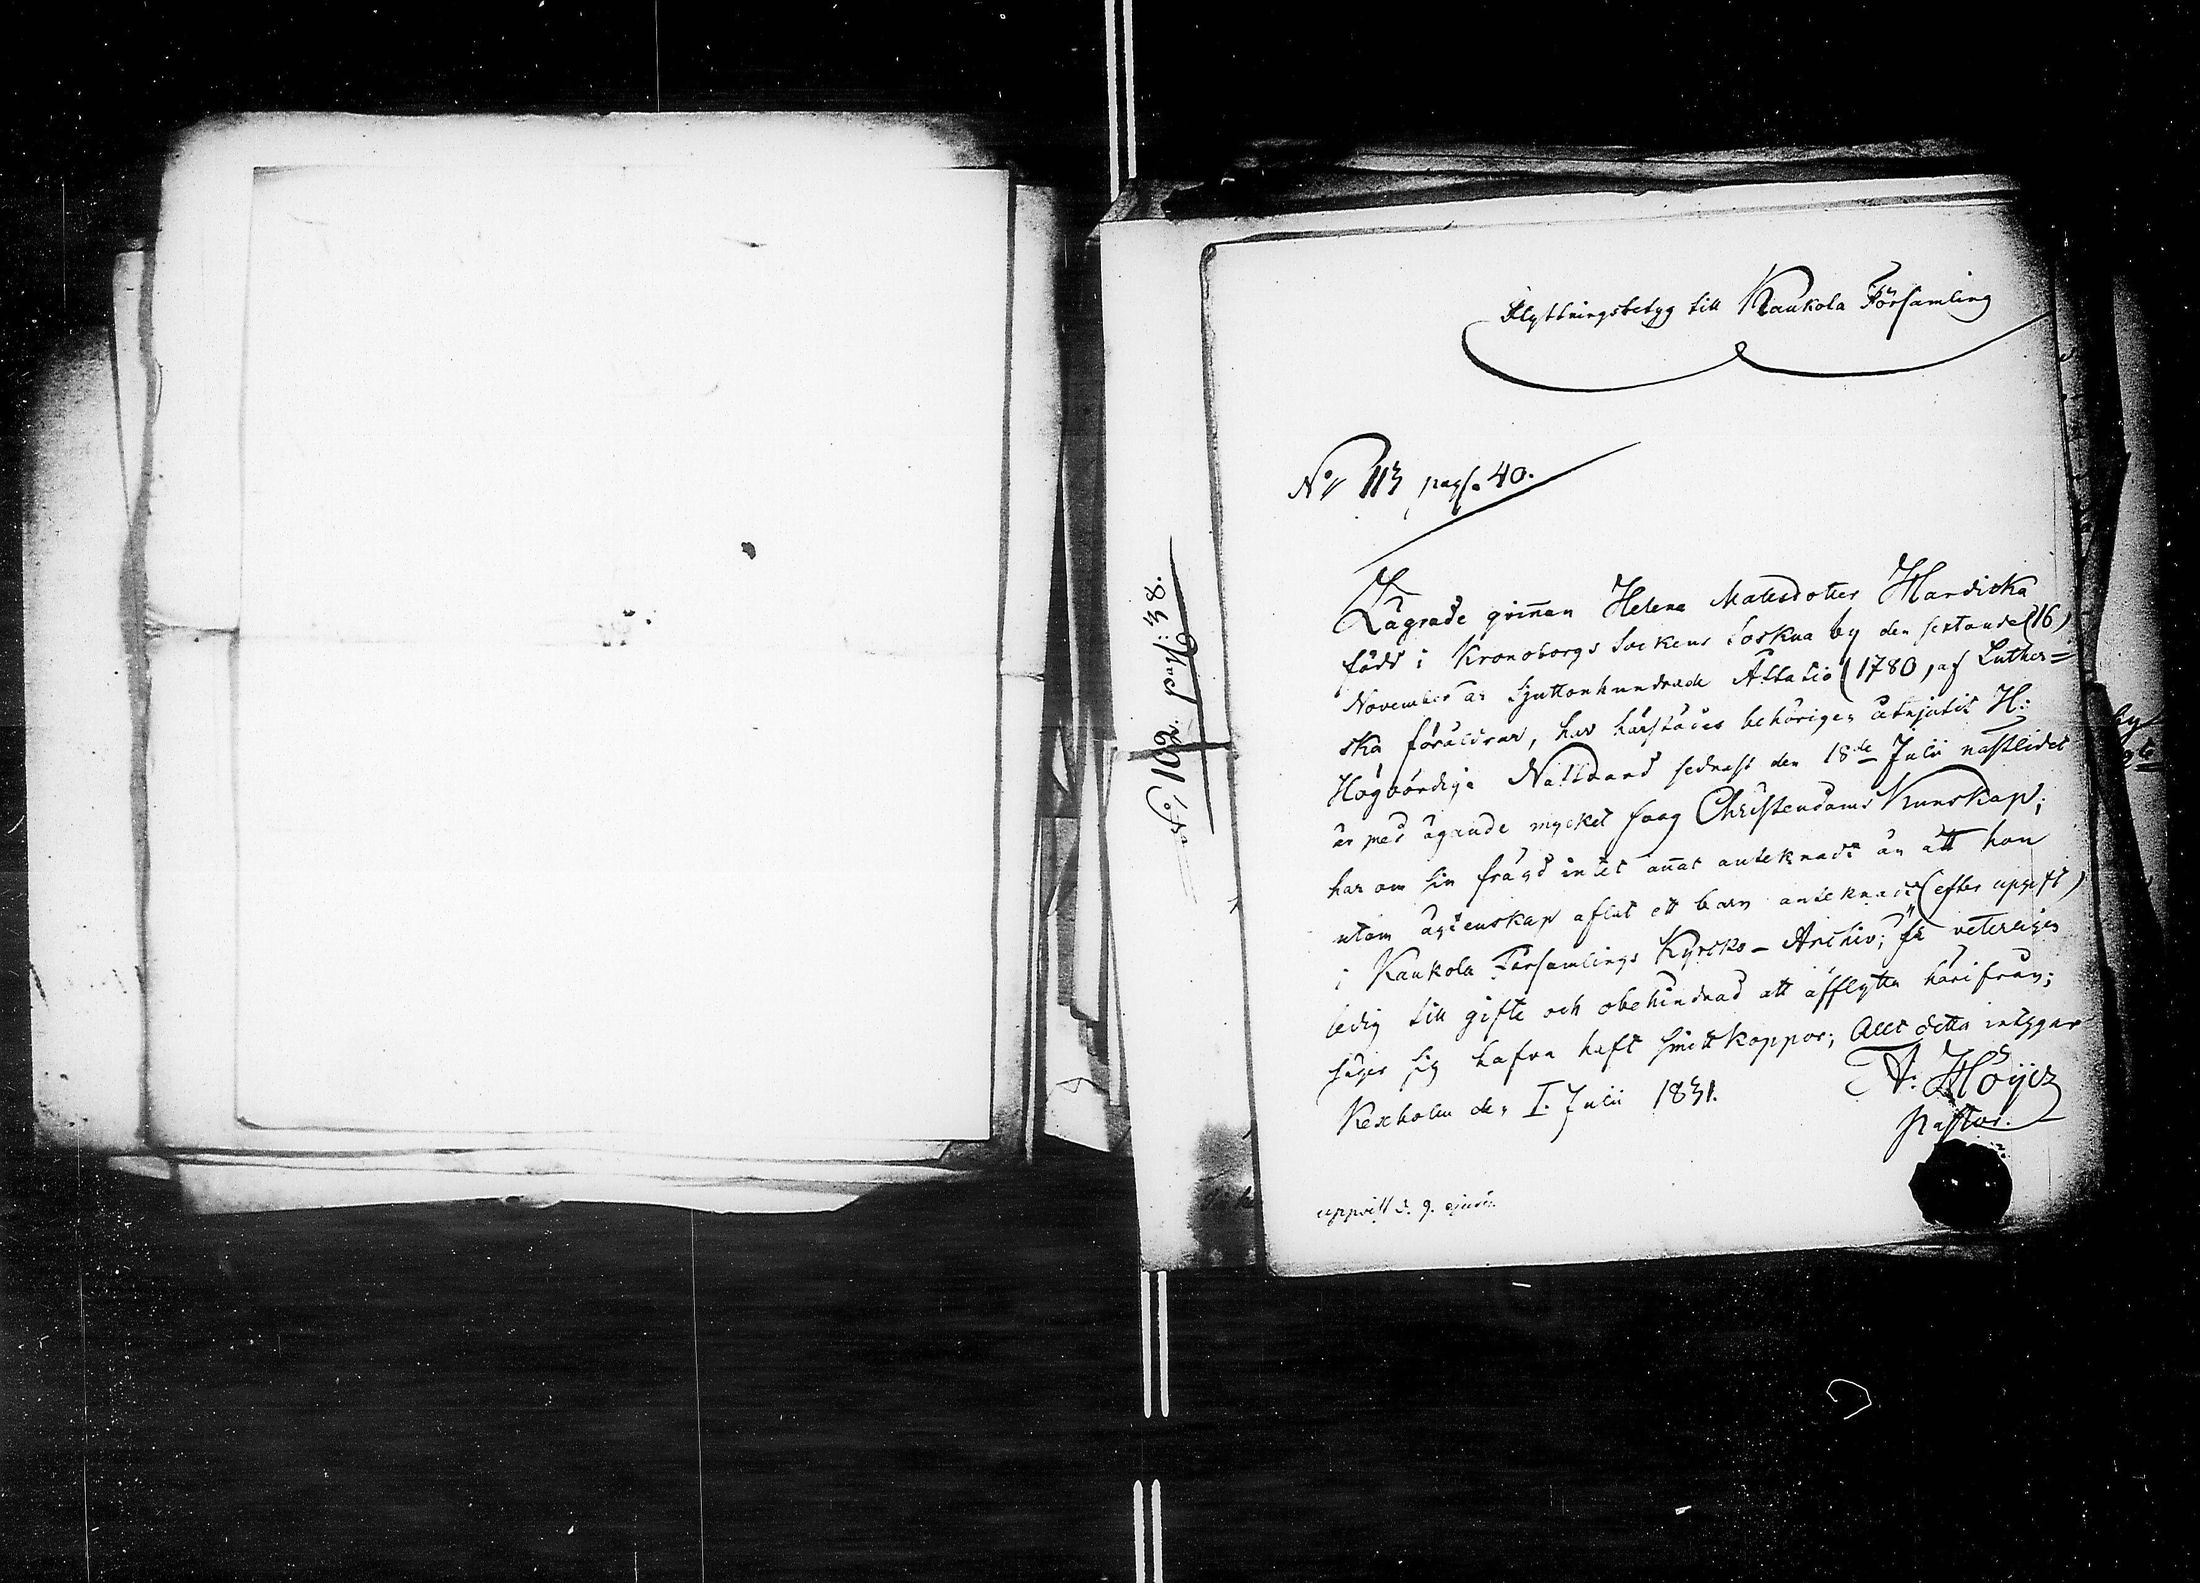 Flyttningsbetyg till Kaukola Församling
No 113 pag. 40.
No 102. pag: 38.
Lägrade qvinnan Helena Mattsdotter Hardicka
född i Kronoborgs Sockens Soskua by den sextonde (16)
November år Sjuttonhundrade Åttatio (1780, af Luther=
ska föräldrar, har härstädes behörigen åtnjutit H:
Högvördiga Nattvard sednast den 18de Julii nästlidet
år med ägande mycket svag Christendoms Kunskap;
har om sin frägd intet annat anteknadt än att hon
utom ägtenskap aflat ett barn anteknadt (efter uppgift)
i Kaukola Församlings Kyrcko-Archiv; är veterligen
ledig till gifte och obehindrad att afflytta härifrån;
säger sig hafva haft Smittkoppor; Allt detta intygar
Kexholm den 1. Julii 1831.
A: Höijer
Pastor.
uppvist d. 9.